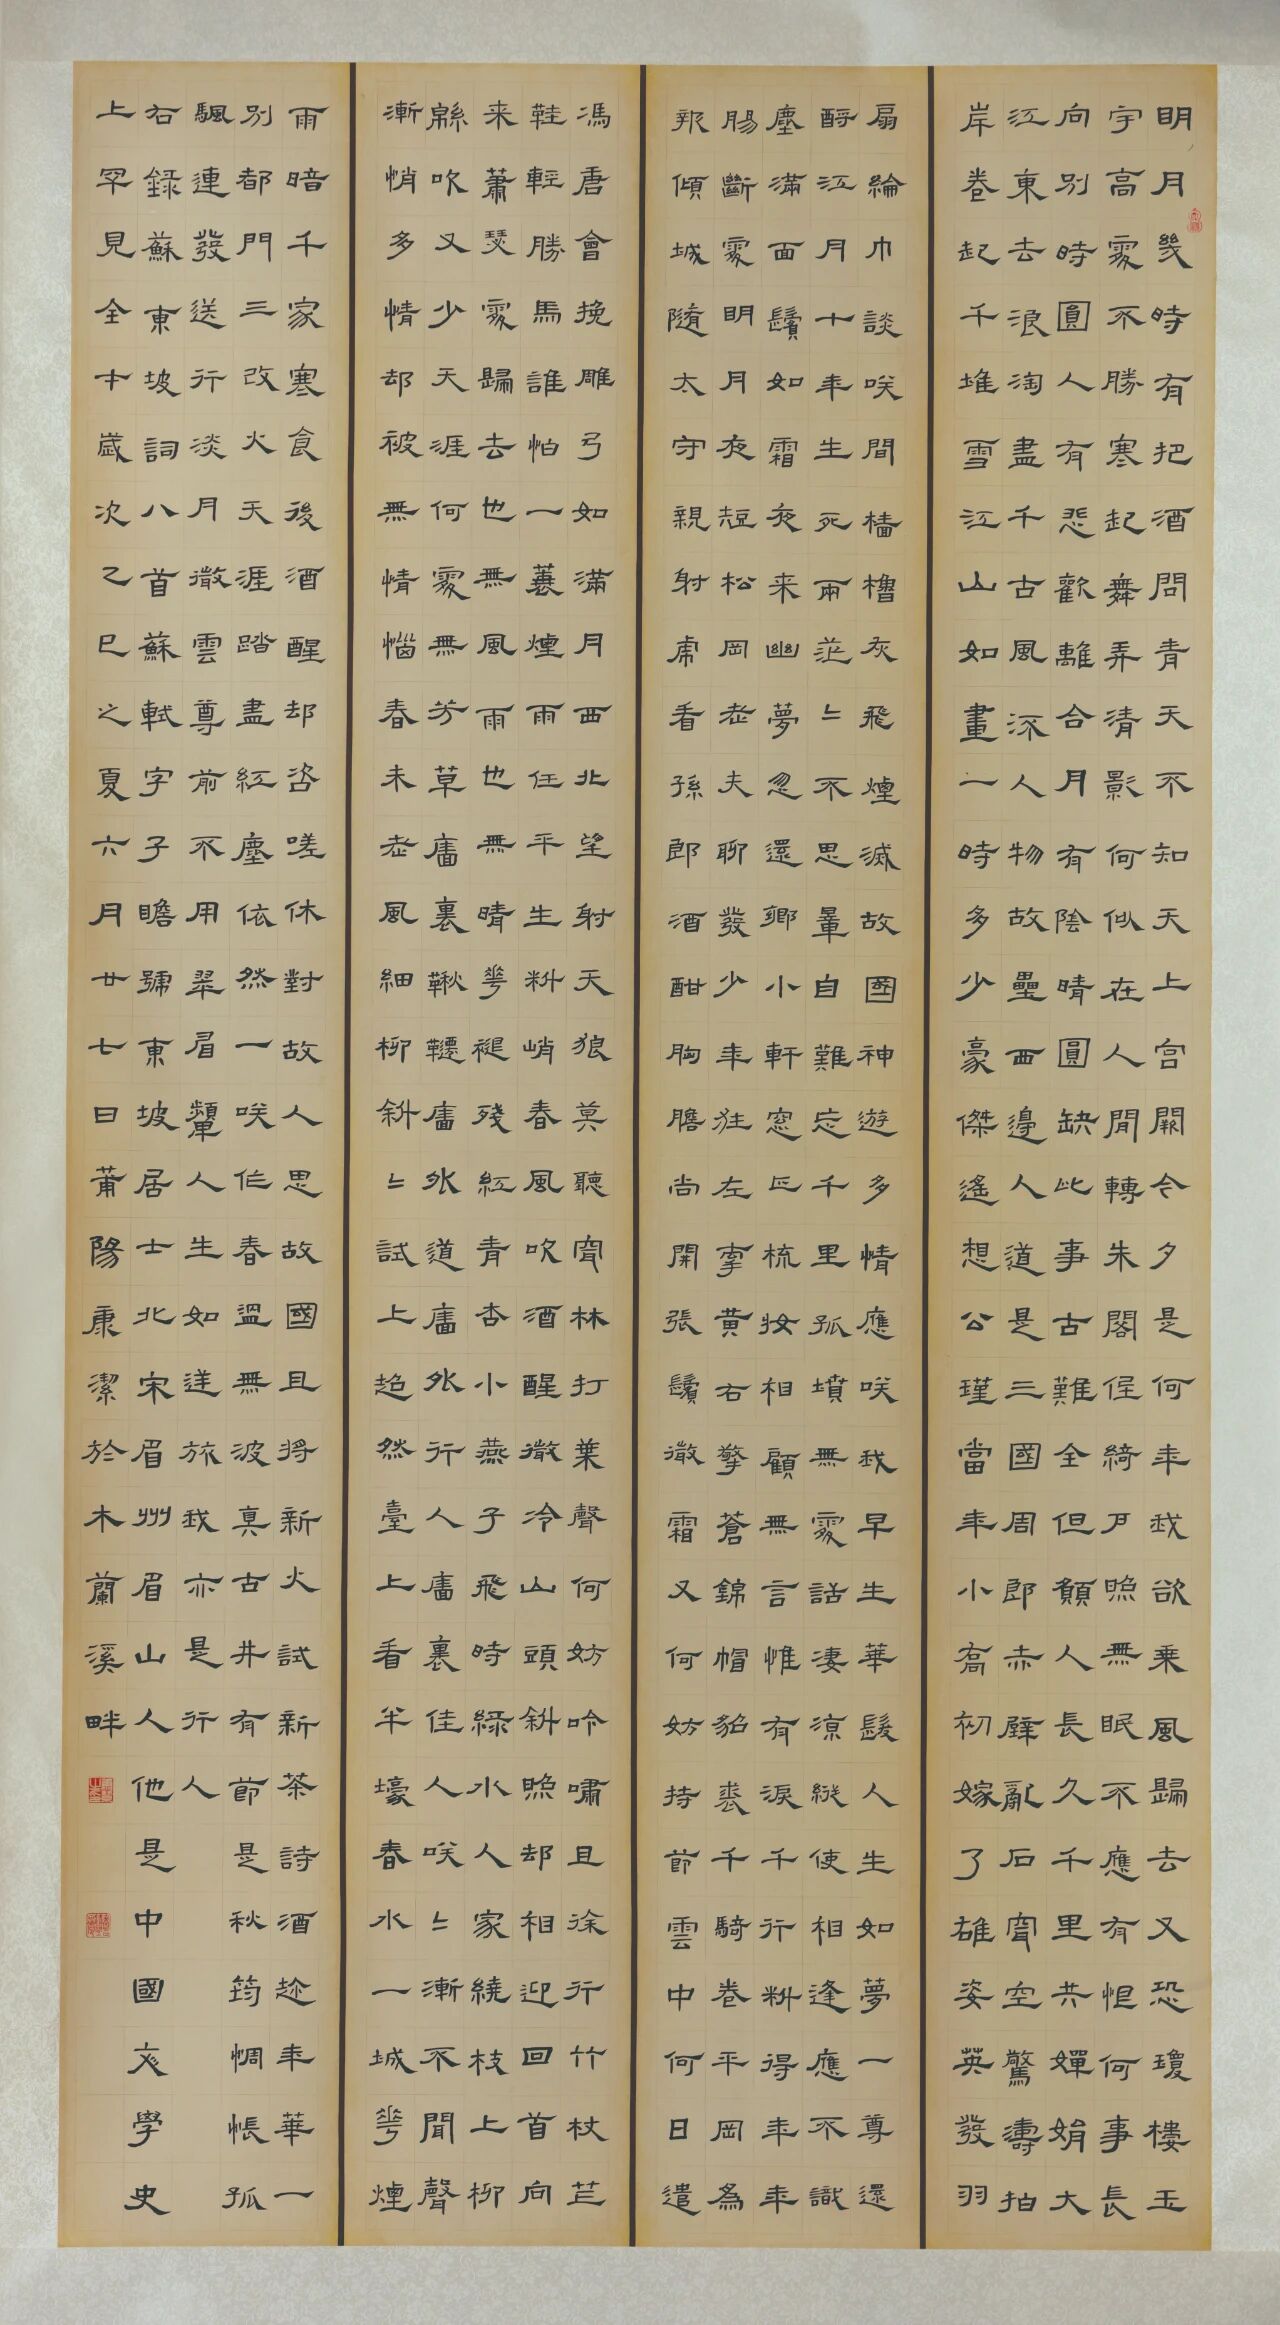 明月幾時有把酒問青天不知天上宮闕今夕是何年我欲乘風歸去又恐瓊樓玉
宇高處不勝寒起舞弄清影何似在人間轉朱閣低綺戶照無眠不應有恨何事長
向別時圓人有悲歡離合月有陰晴圓缺此事古難全但願人長久千里共嬋娟大
江東去浪淘盡千古風流人物故壘西邊人道是三國周郎赤壁亂石穿空驚濤拍
岸卷起千堆雪江山如畫一時多少豪傑遙想公瑾當年小喬初嫁了雄姿英發羽
扇綸巾談咲間檣櫓灰飛煙滅故國神遊多情應咲我早生華髮人生如夢一尊還
酹江月十年生死兩茫〻不思量自難忘千里孤墳無處話淒涼縱使相逢應不識
塵滿面鬢如霜夜来幽夢忽還鄉小軒窓正梳妝相顧無言惟有淚千行料得年年
腸斷處明月夜短松岡老夫聊發少年狂左牽黃右擎蒼錦帽貂裘千騎卷平岡為
報傾城隨太守親射虎看孫郎酒酣胸膽尚開張鬢微霜又何妨持節雲中何日遣
馮唐會挽雕弓如滿月西北望射天狼莫聽穿林打葉聲何妨吟嘯且徐行竹杖芒
鞋輕勝馬誰怕一蓑煙雨任平生料峭春風吹酒醒微冷山頭斜照却相迎回首向
来蕭瑟處歸去也無風雨也無晴花褪殘紅青杏小燕子飛時綠水人家繞枝上柳
綿吹又少天涯何處無芳草牆裏鞦韆牆外道牆外行人牆裏佳人咲〻漸不聞聲
漸悄多情却被無情惱春未老風細柳斜〻試上超然臺上看半壕春水一城花煙
雨暗千家寒食後酒醒却咨嗟休對故人思故國且將新火試新茶詩酒趁年華一
別都門三改火天涯踏盡紅塵依然一咲作春溫無波真古井有節是秋筠惆悵孤
颿連發送行淡月微雲尊前不用翠眉顰人生如逆旅我亦是行人
右錄蘇東坡詞八首蘇軾字子瞻號東坡居士北宋眉州眉山人他是中國文學史
上罕見全才歲次乙巳之夏六月廿七日莆陽康潔於木蘭溪畔